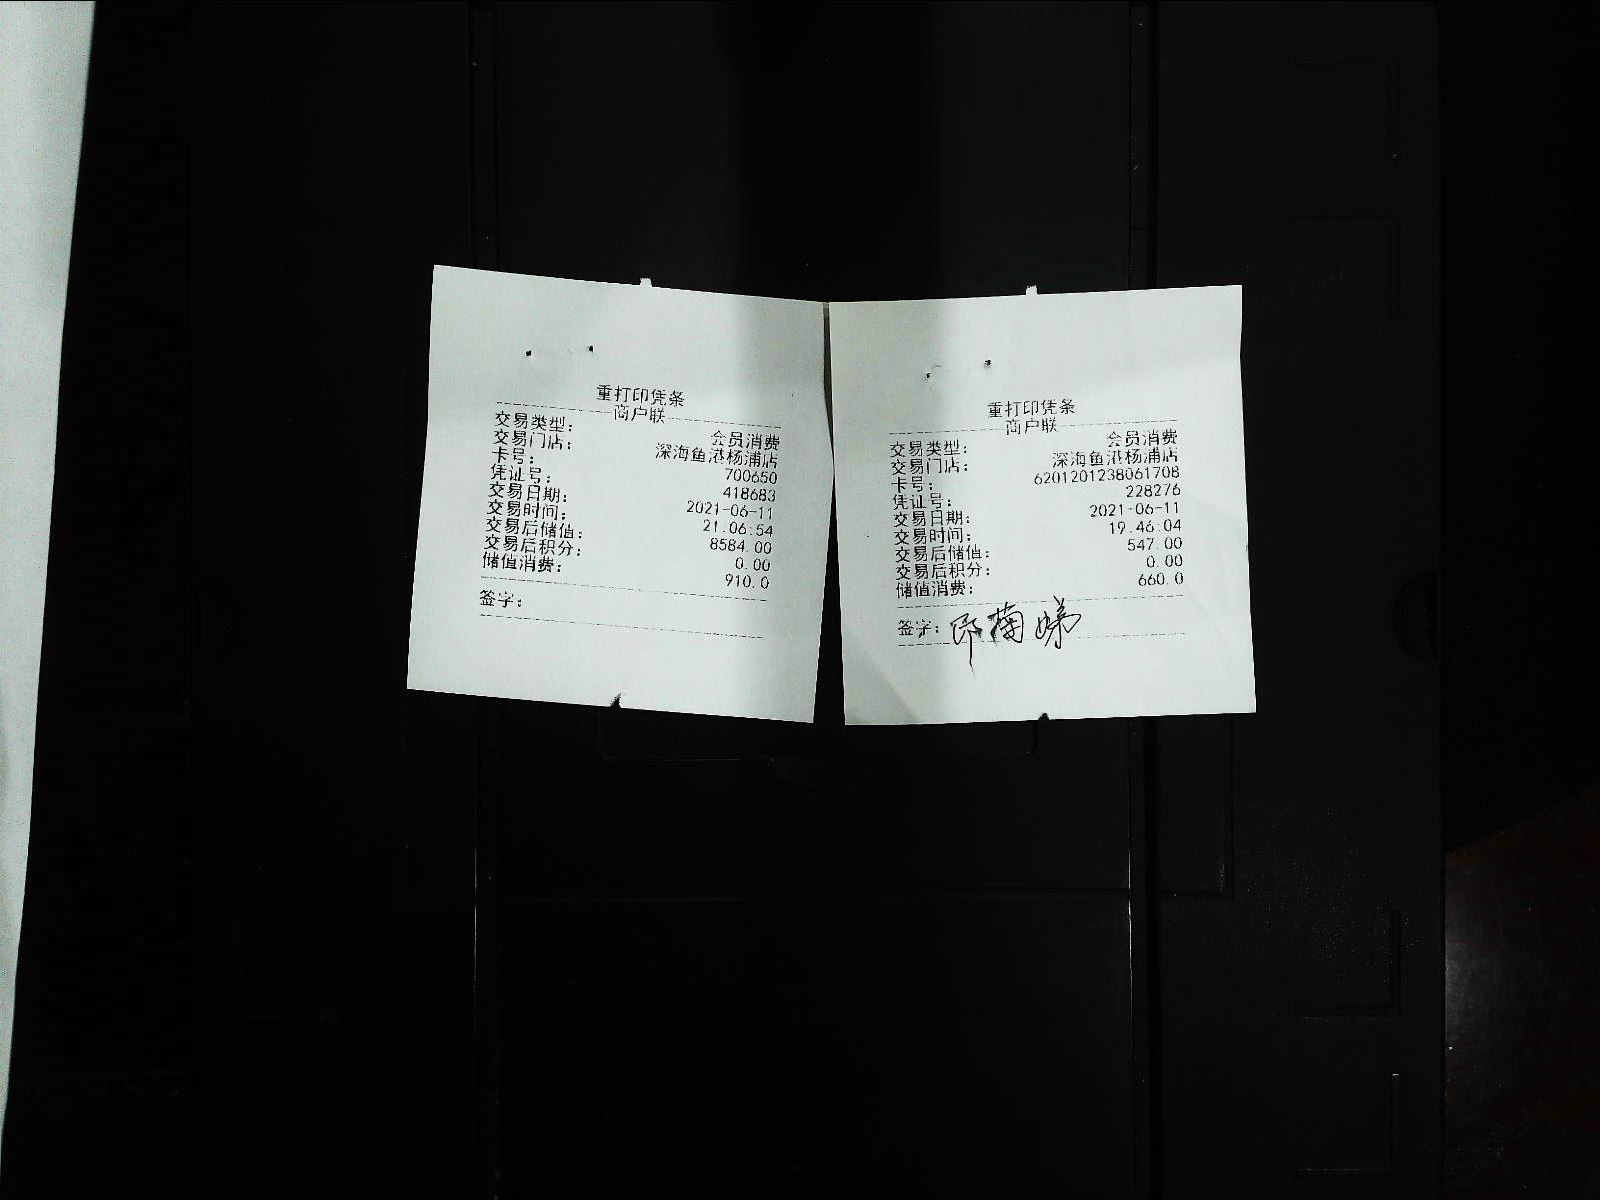 重打印凭条
商户联
交易类型： 会员消费
交易门店： 深海鱼港杨浦店
卡号： 700650
凭证号： 418683
交易日期： 2021-06-11
交易时间： 21:06:54
交易后储值： 8584.00
交易后积分： 0.00
储值消费： 910.0
签字：
重打印凭条
商户联
交易类型： 会员消费
交易门店： 深海鱼港杨浦店
卡号： 6201201238061708
凭证号： 228276
交易日期： 2021-06-11
交易时间： 19:46:04
交易后储值： 547.00
交易后积分： 0.00
储值消费： 660.0
签字：